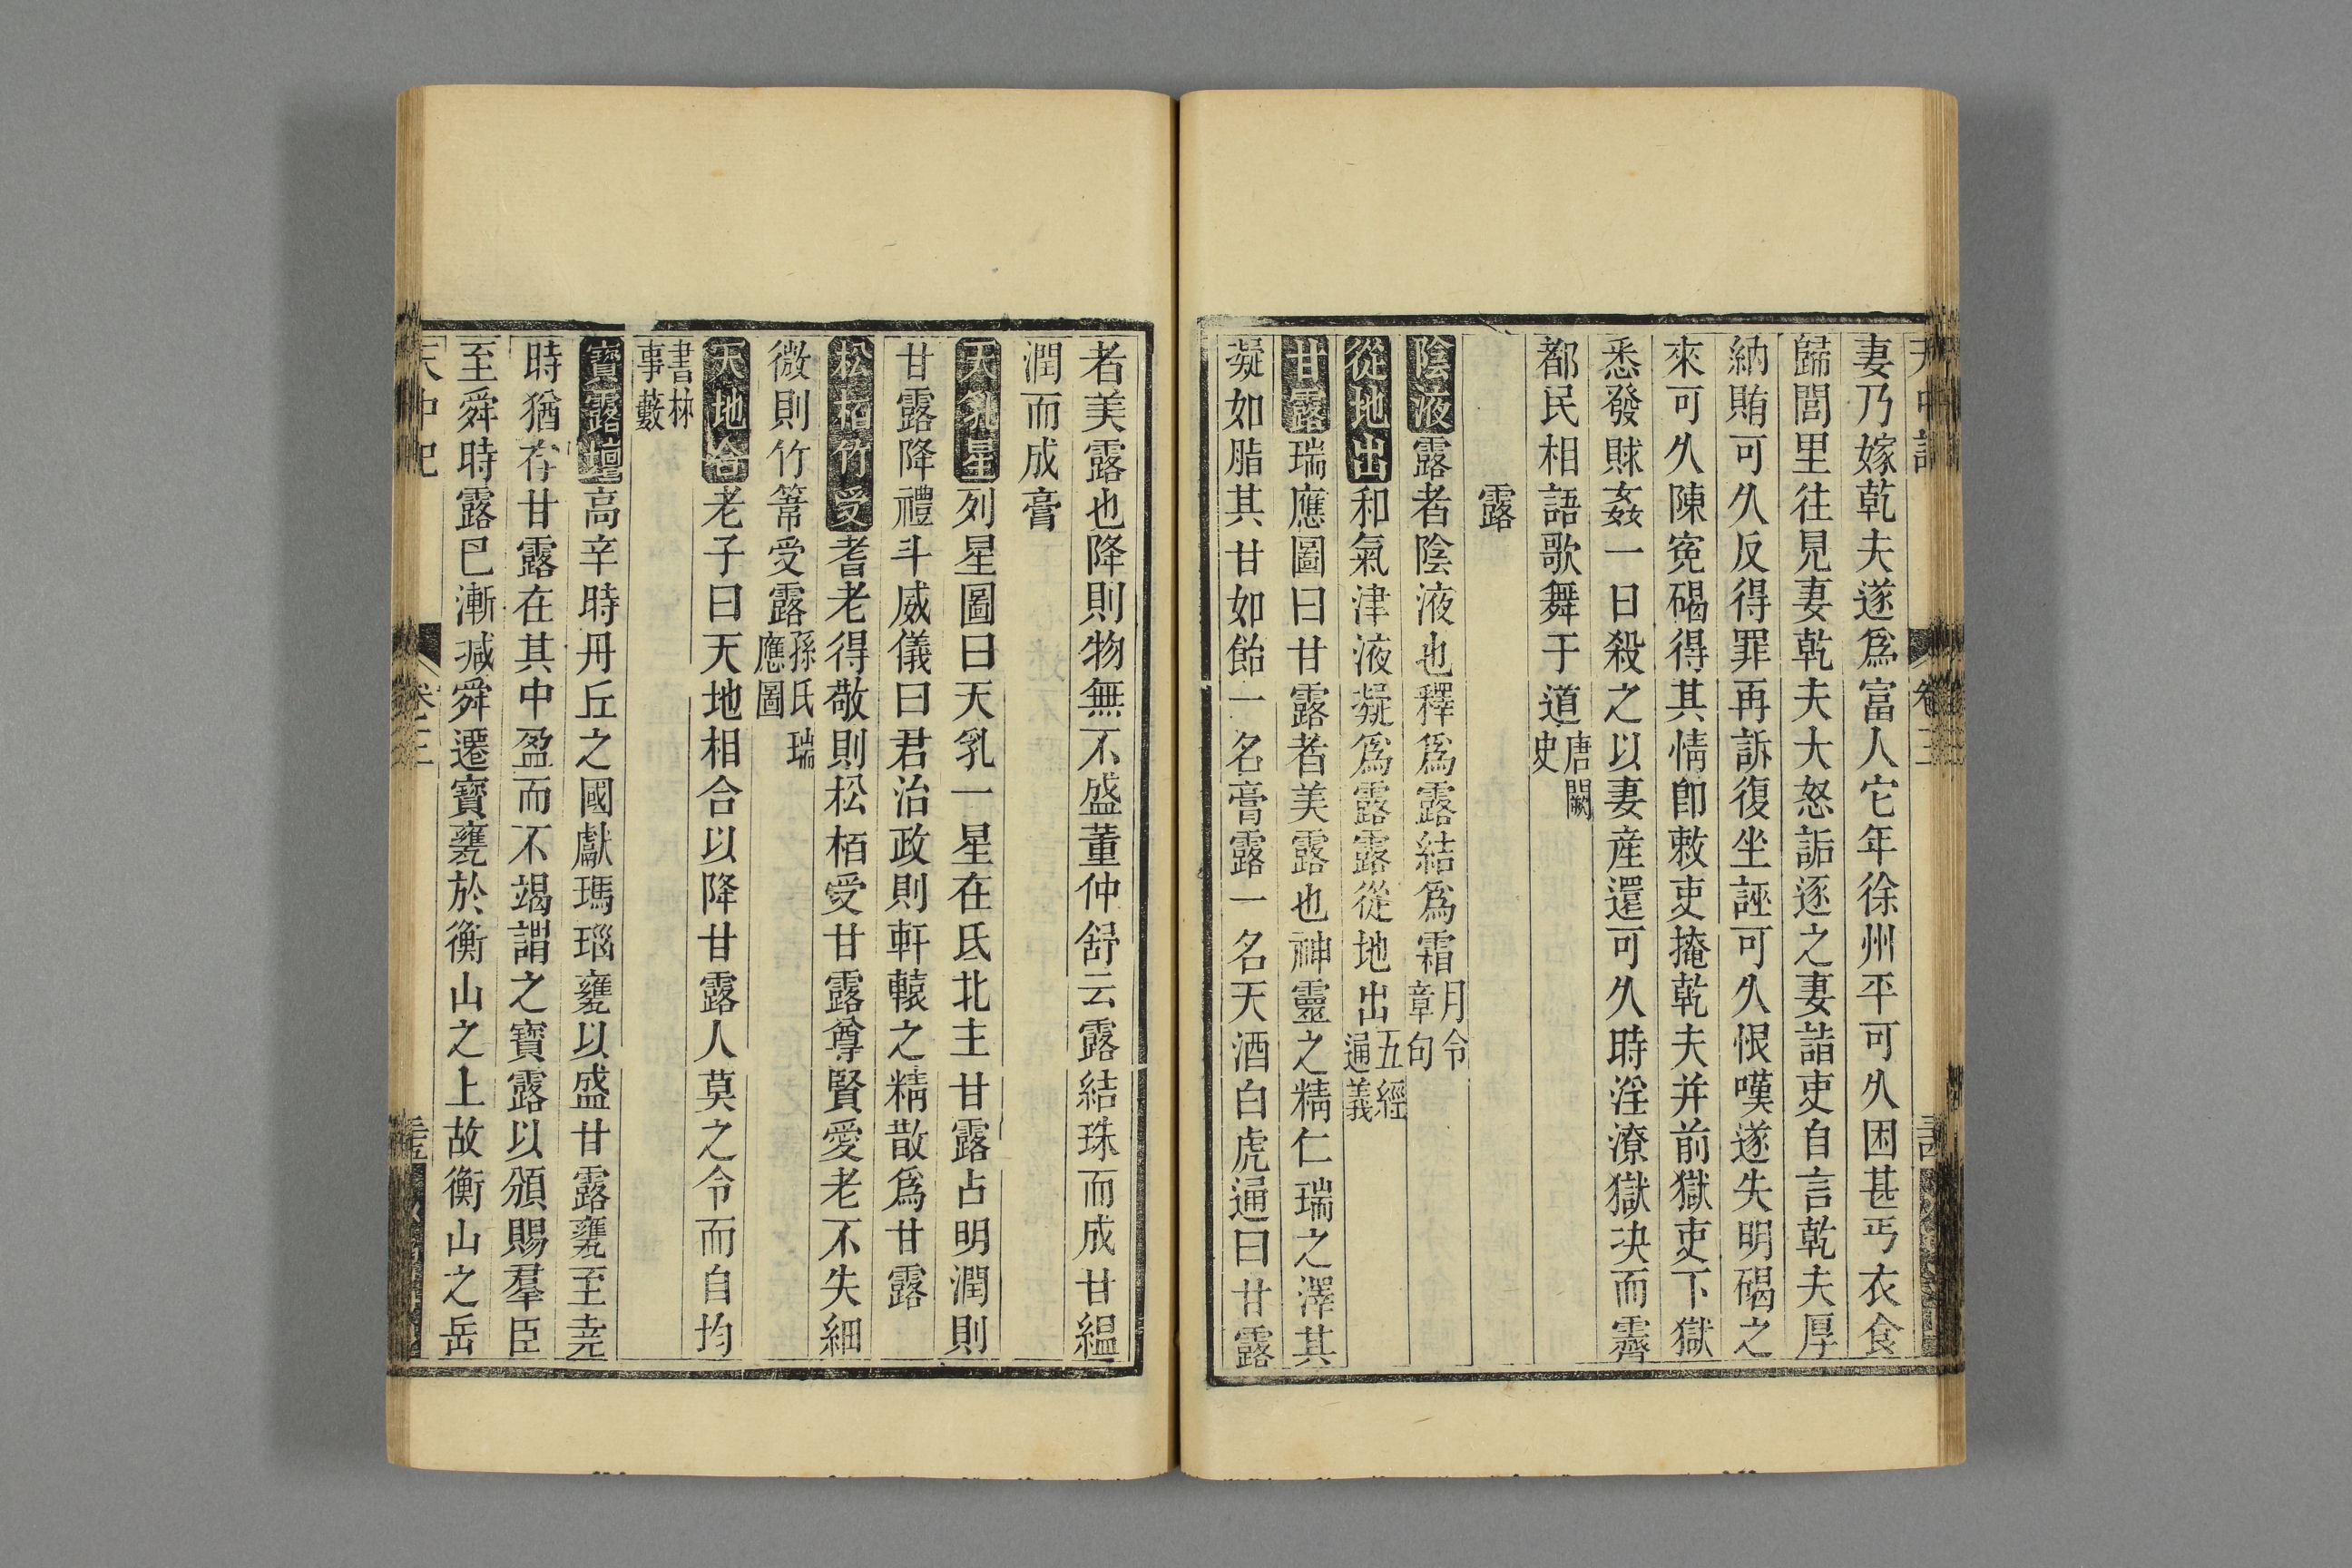 妻乃嫁乾夫遂爲富人它年徐州平可久困甚丐衣食
歸閭里往見妻乾夫大怒詬逐之妻詣吏自言乾夫厚
納賄可久反得罪再訴復坐誣可久恨嘆遂失明碣之
來可久陳寃碣得其情卽敕吏掩乾夫并前獄吏下獄
悉發賕姦一日殺之以妻産還可久時淫潦獄決而霽
都民相語歌舞于道唐闕史
露
陰液露者陰液也釋爲露結爲霜月令章句
從地出和氣津液凝爲露露從地出五經通義
甘露瑞應圖曰甘露者美露也神靈之精仁瑞之澤其
凝如脂其甘如飴一名膏露一名天酒白虎通曰甘露
者美露也降則物無不盛董仲舒云露結珠而成甘縕
潤而成膏
天乳星列星圖曰天乳一星在氐北主甘露占明潤則
甘露降禮斗威儀曰君治政則軒轅之精散爲甘露
松栢竹受耆老得敬則松栢受甘露尊賢愛老不失細
微則竹箒受露孫氏瑞應圖
天地合老子曰天地相合以降甘露人莫之令而自均
書林事藪
寶露壇高辛時丹丘之國獻瑪瑙甕以盛甘露甕至堯
時猶存甘露在其中盈而不竭謂之寶露以頒賜羣臣
至舜時露已漸減舜遷寶甕於衡山之上故衡山之岳
天中記
卷三